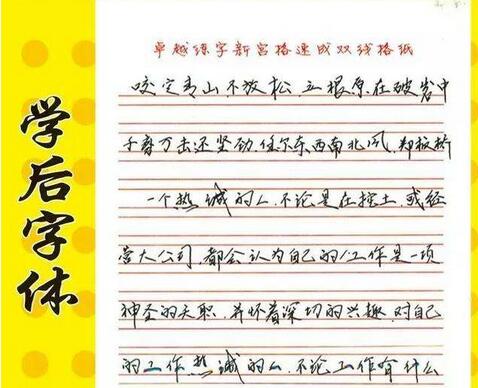 学后字体
卓越练字新宫格速成双线格纸
咬定青山不放松，立根原在破岩中
千磨万击还坚劲，任尔东西南北风，郑板桥
一个热诚的人，不论是在挖土，或经
营大公司，都会认为自己的工作是一项
神圣的天职，并怀着深切的兴趣，对自己
的工作热诚的人，不论工作有什么